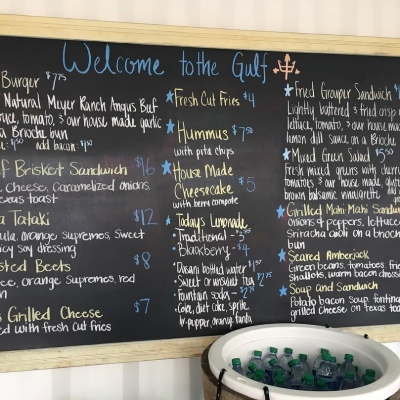 Welcome to the Gulf
Burger $7.75
Natural Meyer Ranch Angus Beef
tomato, & our house made garlic
Brioche bun
add bacon
Brisket Sandwich $16
Cheese, Caramelized onions,
Texas toast
Tataki $12
orange supremes, sweet
soy dressing
Beets $8
orange supremes, red
Grilled Cheese $7
with fresh cut fries
Fresh Cut Fries $4
Hummus $7.50
with pita chips
House Made
Cheesecake $5
with berry compote
Today's Lemonade
Traditional - 3
Blackberry - $4
Dasani bottled water
Sweet or unsweet tea
Fountain soda - $2.75
Coke, diet coke, sprite
dr. pepper, orange fanta
Fried Grouper Sandwich
Lightly battered & fried crisp
lettuce, tomato, & our house
lemon dill sauce on a Brioche
Mixed Green Salad $5.50
Fresh mixed greens with
tomatoes & our house made
brown balsamic vinaigrette
Grilled Mahi-Mahi Sandwich
onions & peppers, lettuce
Sriracha aioli on a brioche
bun
Seared Amberjack
Green beans, tomatoes,
shallots, warm bacon
Soup and Sandwich
Potato bacon soup, fontina
grilled cheese on Texas